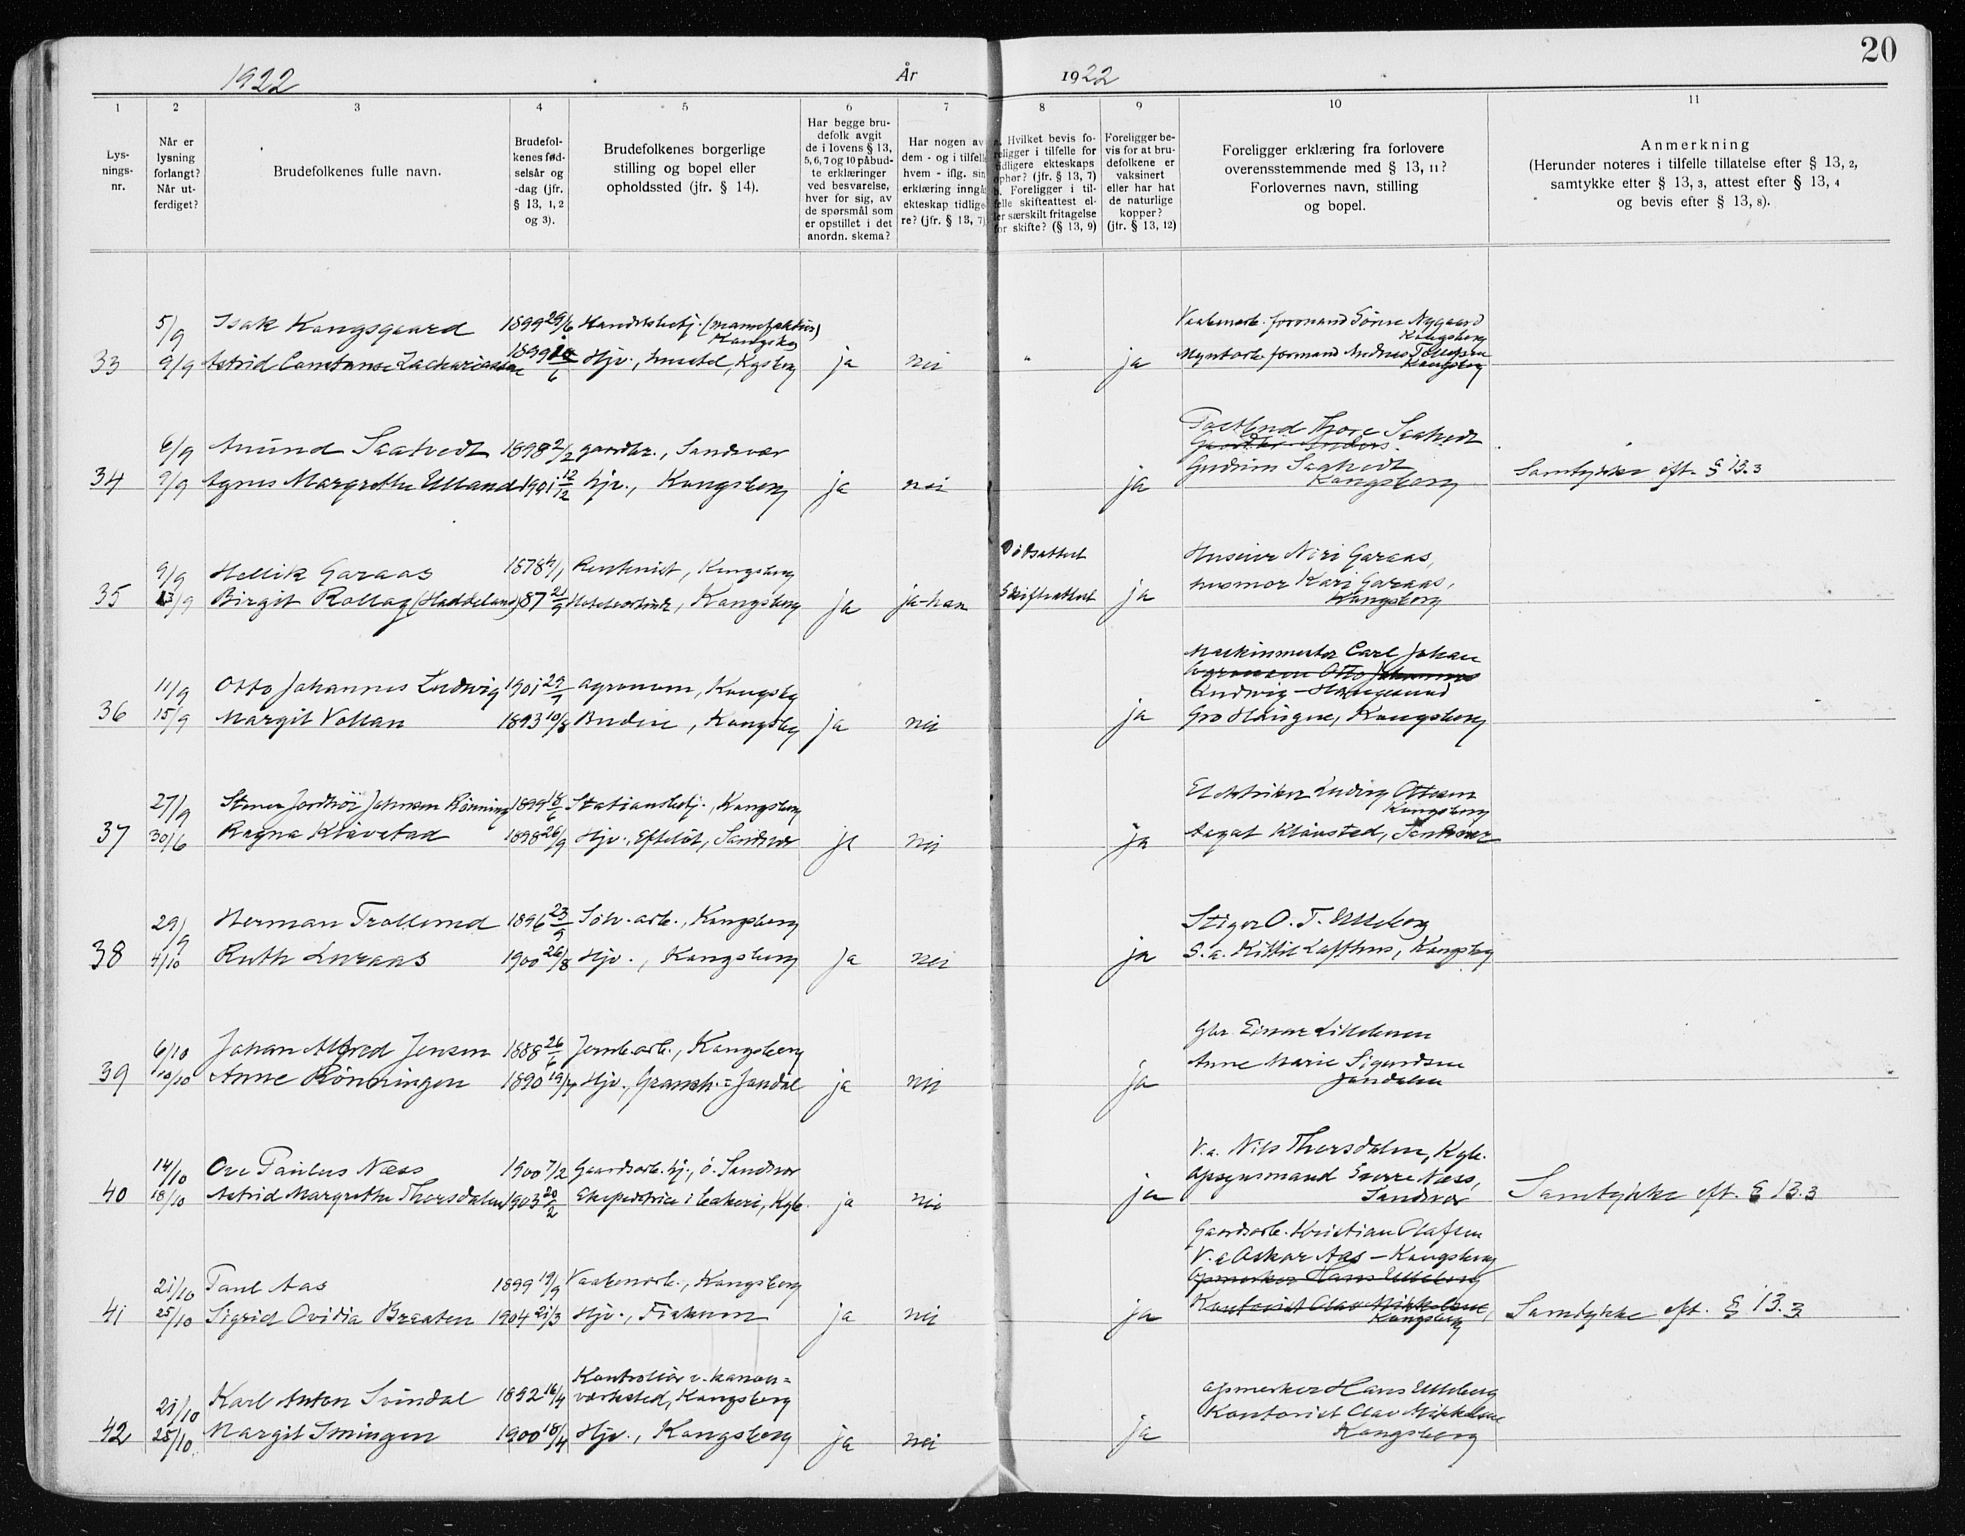 20
1922 År 1922
1 2 3 4 5 6 7 8 9 10 11
Lys-
nings-
nr.
Når er
lysning
forlangt?
Når ut-
ferdiget?
Brudefolkenes fulle navn.
Brudefol-
kenes fød-
selsår og
-dag (jfr.
§ 13, 1, 2
og 3).
Brudefolkenes borgerlige
stilling og bopel eller
opholdssted (jfr. § 14).
Har begge bru-
defolk avgit
de i lovens § 13,
5, 6, 7 og 10 påbud-
te erklæringer
ved besvarelse,
hver for sig, av
de spørsmål som
er opstillet i det
anordn. skema?
Har nogen av
dem - og i tilfelle
hvem - iflg. sin
erklæring inngå
ekteskap tidlige-
re? (jfr. § 13, 7)
a. Hvilket bevis fo-
religger i tilfelle for
tidligere ekteskaps
ophør? (jfr. § 13, 7)
b. Foreligger i til-
felle skifteattest el-
ler særskilt fritagelse
for skifte? (§ 13, 9)
Foreligger be-
vis for at bru-
defolkene er
vaksinert
eller har hat
de naturlige
kopper?
(jfr. § 13, 12)
Foreligger erklæring fra forlovere
overensstemmende med § 13, 11?
Forlovernes navn, stilling
og bopel.
Anmerkning
(Herunder noteres i tilfelle tillatelse efter § 13, 2,
samtykke etter § 13, 3, attest efter § 13, 4
og bevis efter § 13, 8).
5/9 Isak Kongsgaard 1899 29/6 Handelsbetj. (manufaktur) Kongsbg
Vaabenarb. formand Nygaard Kongsberg
33 9/9 Astrid Constanse Zachariassen 1899 /6 Hjv., Kgsberg ja nei " ja Myntarb. formand Andreas Tollefsen Kongsberg
6/9 Amund Saatvedt 1898 2/2 gaardbr., Sandsvær
Thore Saatvedt
34 9/9 Agnes Margrethe Ulland 1901 12/12 hjv., Kongsberg ja nei ja Gudrun Saatvedt Kongsberg Samtykke eft. § 13.3
9/9 Hellik Garaas 1878 4/1 Rentenist, Kongsberg Dødsattest Huseier Niri Garaas,
35 13/9 Birgit Rollag (Haddeland) 87 2/9 Kongsberg ja ja-han Skifteattest ja husmor Kari Garaas, Kongsberg
Maskinmester Carl Johan
11/9 Otto Johannes Ludwig 1901 29/7 agronom, Kongsbg Agronom Otto Johannes
Ludwig - Haugesund
36 15/9 Margit Vollan 1893 10/8 Budeie, Kongsbg ja nei ja Gro Haugne, Kongsberg
27/9 Johnsen Rønning 1899 18/6 Stationsbetj., Kongsberg Elektriker Ludvig Ottesen Kongsberg
37 30/6 Ragna Klåvstad 1898 26/9 Hjv., Efteløt, Sandsvær ja nei ja Aagat Klåvsted, Sandsvær
29/9 Herman Trollerud 1896 23/9 Sølv.arb., Kongsberg Stiger O. T. Ulleberg
38 4/10 Ruth Luraas 1900 26/8 Hjv., Kongsberg ja nei ja S.a. Kittil Lofthus, Kongsbg
6/10 Johan Alfred Jensen 1888 26/6 Jernb.arb., Kongsberg Gbr. Einar Lillebuen
39 10/10 Anne Rønningen 1890 19/7 Hjv., Jondal ja nei ja Anne Marie Sigurdsen Jondalen
14/10 Ove Paulus Næss 1900 7/2 Gaardsarb. hj., ø. Sandsvær V.a. Nils Thorsdalen, Kgb.
40 18/10 Astrid Margrethe Thorsdalen 1903 20/2 Ekspeditrice i bakeri, Kgb. ja nei ja Opsynsmand Sverre Næss, Sandsvær Samtykke eft. § 13.3
Gaardsarb. Kristian Olafsen
V.a Oskar Aas - Kongsberg
21/10 Paul Aas 1899 19/9 Vaabenarb., Kongsberg Opmerker Hans Ulleberg
41 25/10 Sigrid Ovidia Braaten 1904 21/3 Hjv., Fiskum ja nei ja Kontorist Olav Mikkelsen, Kongsberg Samtykke eft. § 13.3
21/10 Karl Anton Svindal 1892 16/9 Kontrollør v. kanon=
værksted, Kongsberg Opmerker Hans Ulleberg
42 25/10 Margit Imingen 1900 18/4 Hjv., Kongsberg ja nei ja Kontorist Olav Mikkelsen Kongsberg